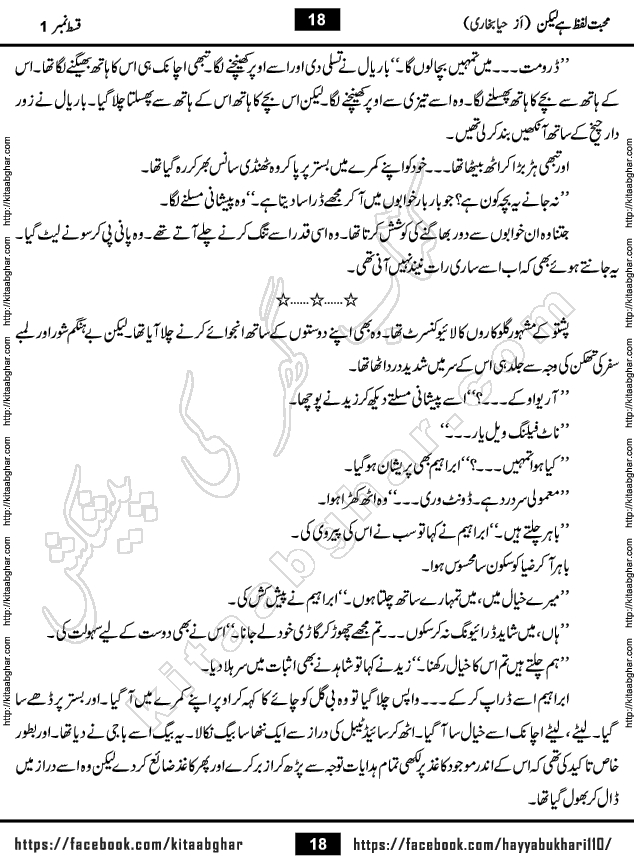 محبت لفظ ہے لیکن (از حیا بخاری) 18 قسط نمبر 1
’’ڈرومت۔۔۔میں تمہیں بچالوں گا۔‘‘باریال نے تسلی دی اور اسے اوپر کھینچنے لگا۔ تبھی اچانک ہی اس کا ہاتھ بھیگنے لگا تھا۔ اس
کے ہاتھ سے بچے کا ہاتھ پھسلنے لگا۔ وہ اسے تیزی سے اوپر کھینچنے لگا لیکن اس بچے کا ہاتھ اس کے ہاتھ سے پھسلتا چلا گیا۔ باریال نے زور
دار چیخ کے ساتھ آنکھیں بند کرلی تھیں۔
اور تبھی ہڑبڑا کر اٹھ بیٹھا تھا۔۔۔خود کو اپنے کمرے میں بستر پر پا کر وہ ٹھنڈی سانس بھر کر رہ گیا تھا۔
’’نہ جانے یہ بچہ کون ہے؟ جو بار بار خوابوں میں آ کر مجھے ڈرا سا دیتا ہے۔‘‘وہ پیشانی مسلنے لگا۔
جتنا وہ ان خوابوں سے دور بھاگنے کی کوشش کرتا تھا۔ وہ اسی قدر اسے تنگ کرنے چلے آتے تھے۔ وہ پانی پی کر سونے لیٹ گیا۔
یہ جانتے ہوئے بھی کہ اب اسے ساری رات نیند نہیں آنی تھی۔
☆......☆......☆
پشتو کے مشہور گلوکاروں کا لائیو کنسرٹ تھا۔ وہ بھی اپنے دوستوں کے ساتھ انجوائے کرنے چلا آیا تھا۔ لیکن بے ہنگم شور اور لمبے
سفر کی تھکن کی وجہ سے جلد ہی اس کے سر میں شدید درد اٹھا تھا۔
’’آر یو اوکے۔۔۔؟‘‘اسے پیشانی مسلتے دیکھ کر زید نے پوچھا۔
’’ناٹ فیلنگ ویل یار۔۔۔‘‘
’’کیا ہوا تمہیں۔۔۔؟‘‘ابراہیم بھی پریشان ہو گیا۔
’’معمولی سر درد ہے۔ ڈونٹ وری۔۔۔‘‘وہ اٹھ کھڑا ہوا۔
’’باہر چلتے ہیں۔‘‘ابراہیم نے کہا تو سب نے اس کی پیروی کی۔
باہر آ کر ضیا کو سکون سا محسوس ہوا۔
’’میرے خیال میں، میں تمہارے ساتھ چلتا ہوں۔‘‘ابراہیم نے پیش کش کی۔
’’ہاں، میں شاید ڈرائیونگ نہ کر سکوں۔۔۔تم مجھے چھوڑ کر گاڑی خود لے جانا۔‘‘اس نے بھی دوست کے لیے سہولت کی۔
’’ہم چلتے ہیں تم اس کا خیال رکھنا۔‘‘زید نے کہا تو شاہد نے بھی اثبات میں سر ہلا دیا۔
ابراہیم اسے ڈراپ کر کے۔۔۔واپس چلا گیا تو وہ بی گل کو چائے کا کہہ کر اوپر اپنے کمرے میں آ گیا۔ اور بستر پر ڈھے سا
گیا۔ لیٹے، لیٹے اچانک اسے خیال سا آ گیا۔ اٹھ کر سائیڈ ٹیبل کی دراز سے ایک ننھا سا بیگ نکالا۔ یہ بیگ اسے باجی نے دیا تھا۔ اور بطور
خاص تاکید کی تھی کہ اس کے اندر موجود کاغذ پر لکھی تمام ہدایات توجہ سے پڑھ کر از بر کرے اور پھر کاغذ ضائع کر دے لیکن وہ اسے دراز میں
ڈال کر بھول گیا تھا۔
کتاب گھر کی پیشکش
kitaabghar.com
http://kitaabghar.com http://kitaabghar.com http://kitaabghar.com http://kitaabghar.com http://kitaabghar.com http://kitaabghar.com
http://kitaabghar.com http://kitaabghar.com http://kitaabghar.com http://kitaabghar.com http://kitaabghar.com http://kitaabghar.com
https://facebook.com/kitaabghar 18 https://facebook.com/hayyabukhari110/